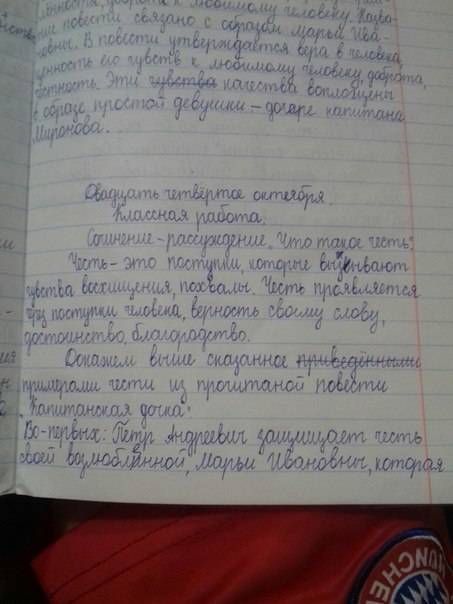 льность, доброта к любимому человеку. Назва-
ние повести связано с образом Марьи Ива-
новны. В повести утверждается вера в человека,
ценность его чувств к любимому человеку, доброта,
честность. Эти чувства качества воплощены
в образе простой девушки – дочере капитана
Миронова.
Двадцать четвёртое октебря.
Классная работа.
Сочинение – рассуждение „Что такое честь“.
Честь – это поступки, которые вызывают
чувства восхищения, похвалы. Честь проявляется
через поступки человека, верность своему слову,
достоинство, благородство.
Докажем выше сказанное приведёнными
примерами чести из прочитаной повести
„Капитанская дочка“.
Во-первых: Пётр Андреевич защищает честь
своей возлюбленной, Марьи Ивановны, которая
MÜNCHEN